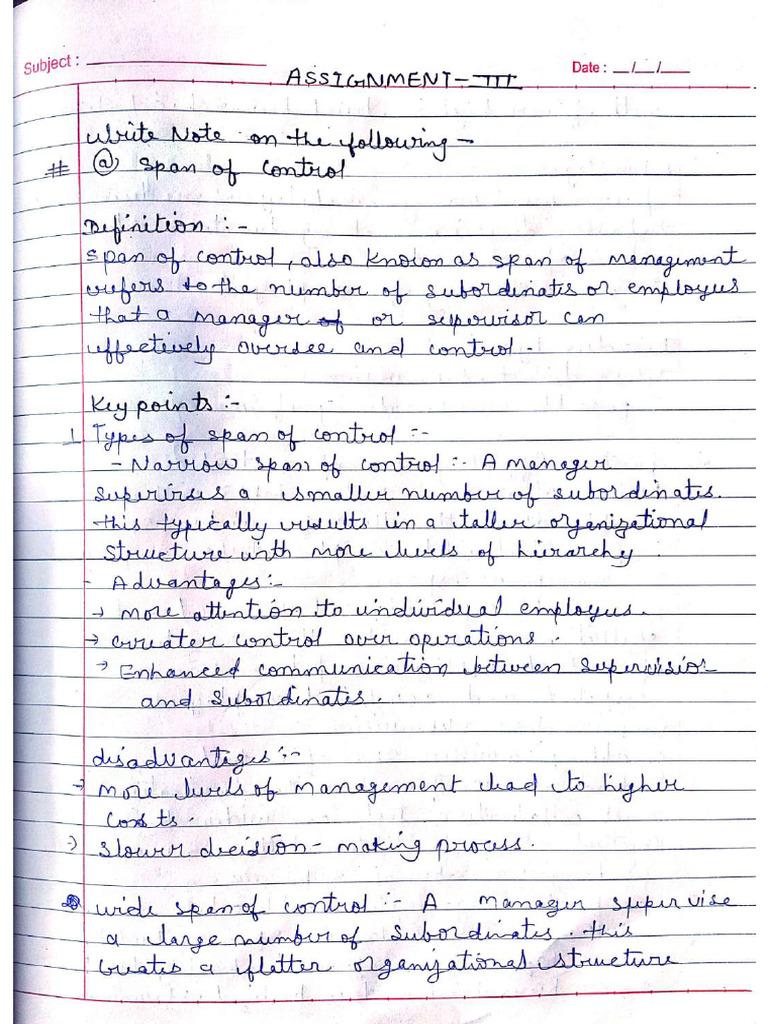 Subject :
Date : __/__/__
ASSIGNMENT-III
Write Note on the following -
# @ Span of control
Definition :-
Span of control, also known as span of management
refers to the number of subordinates or employees
that a manager of or supervisor can
effectively oversee and control.
Key points :-
1 Types of span of control :-
- Narrow span of control :- A manager
supervises a smaller number of subordinates.
this typically results in a taller organizational
structure with more levels of hierarchy.
- Advantages :-
→ more attention to individual employees.
→ Greater control over operations.
→ Enhanced communication between supervisior
and subordinates.
disadvantages :-
→ more levels of management lead to higher
costs.
→ slower decision - making process.
wide span of control :- A manager supervise
a large number of subordinates. this
creates a flatter organizational structure